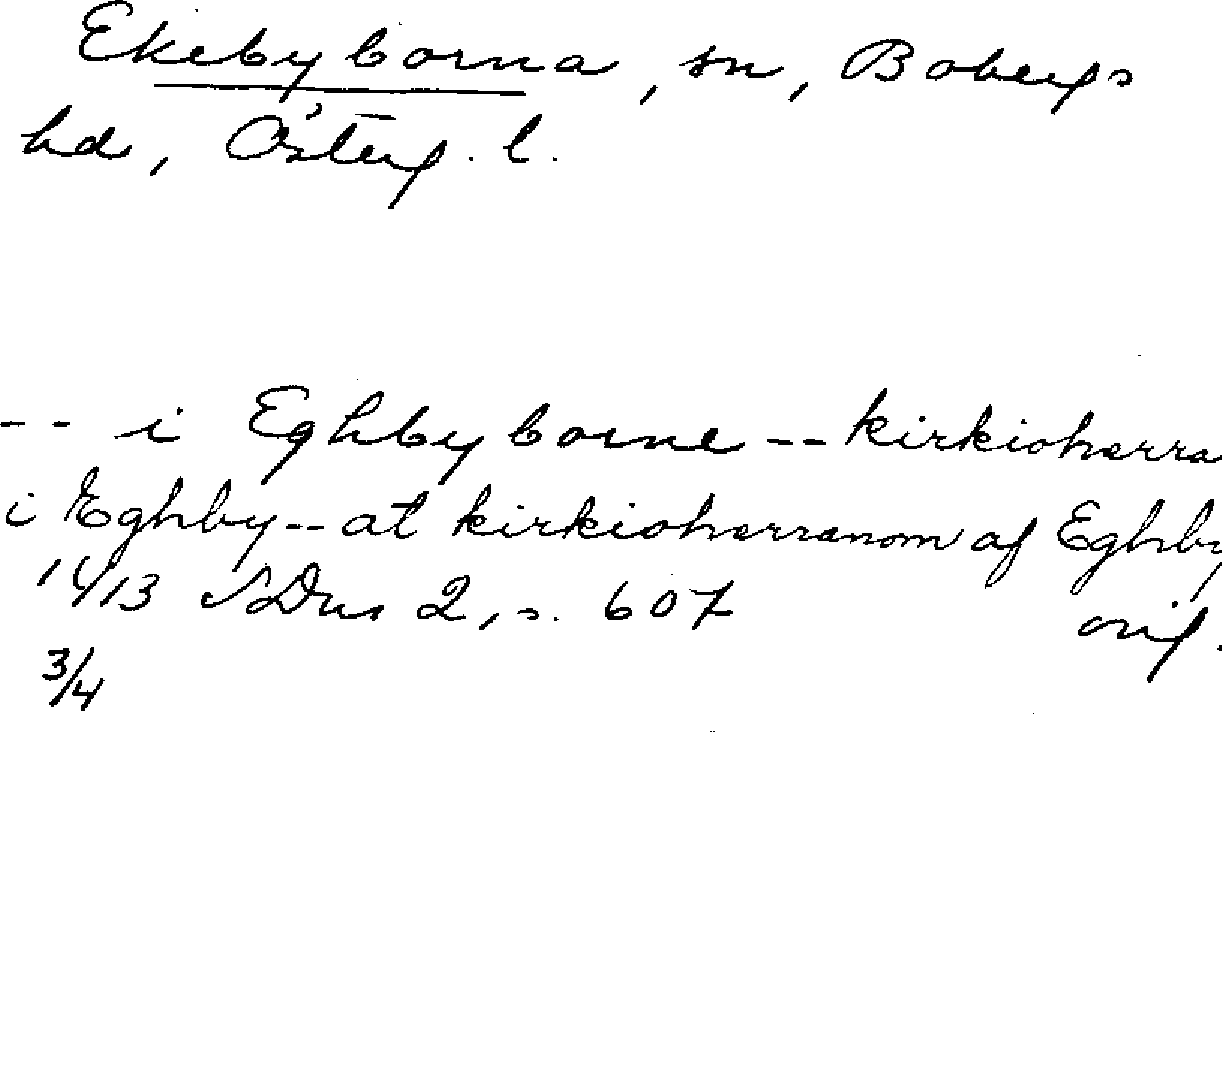 Ekebyborna, sn, Bobergs
hd, Österg. l.
-- i Eghbyborne -- kirkioherra
i Eghby -- at kirkioherranom af Eghby
1413 SDns 2, s. 607 orig.
3/4